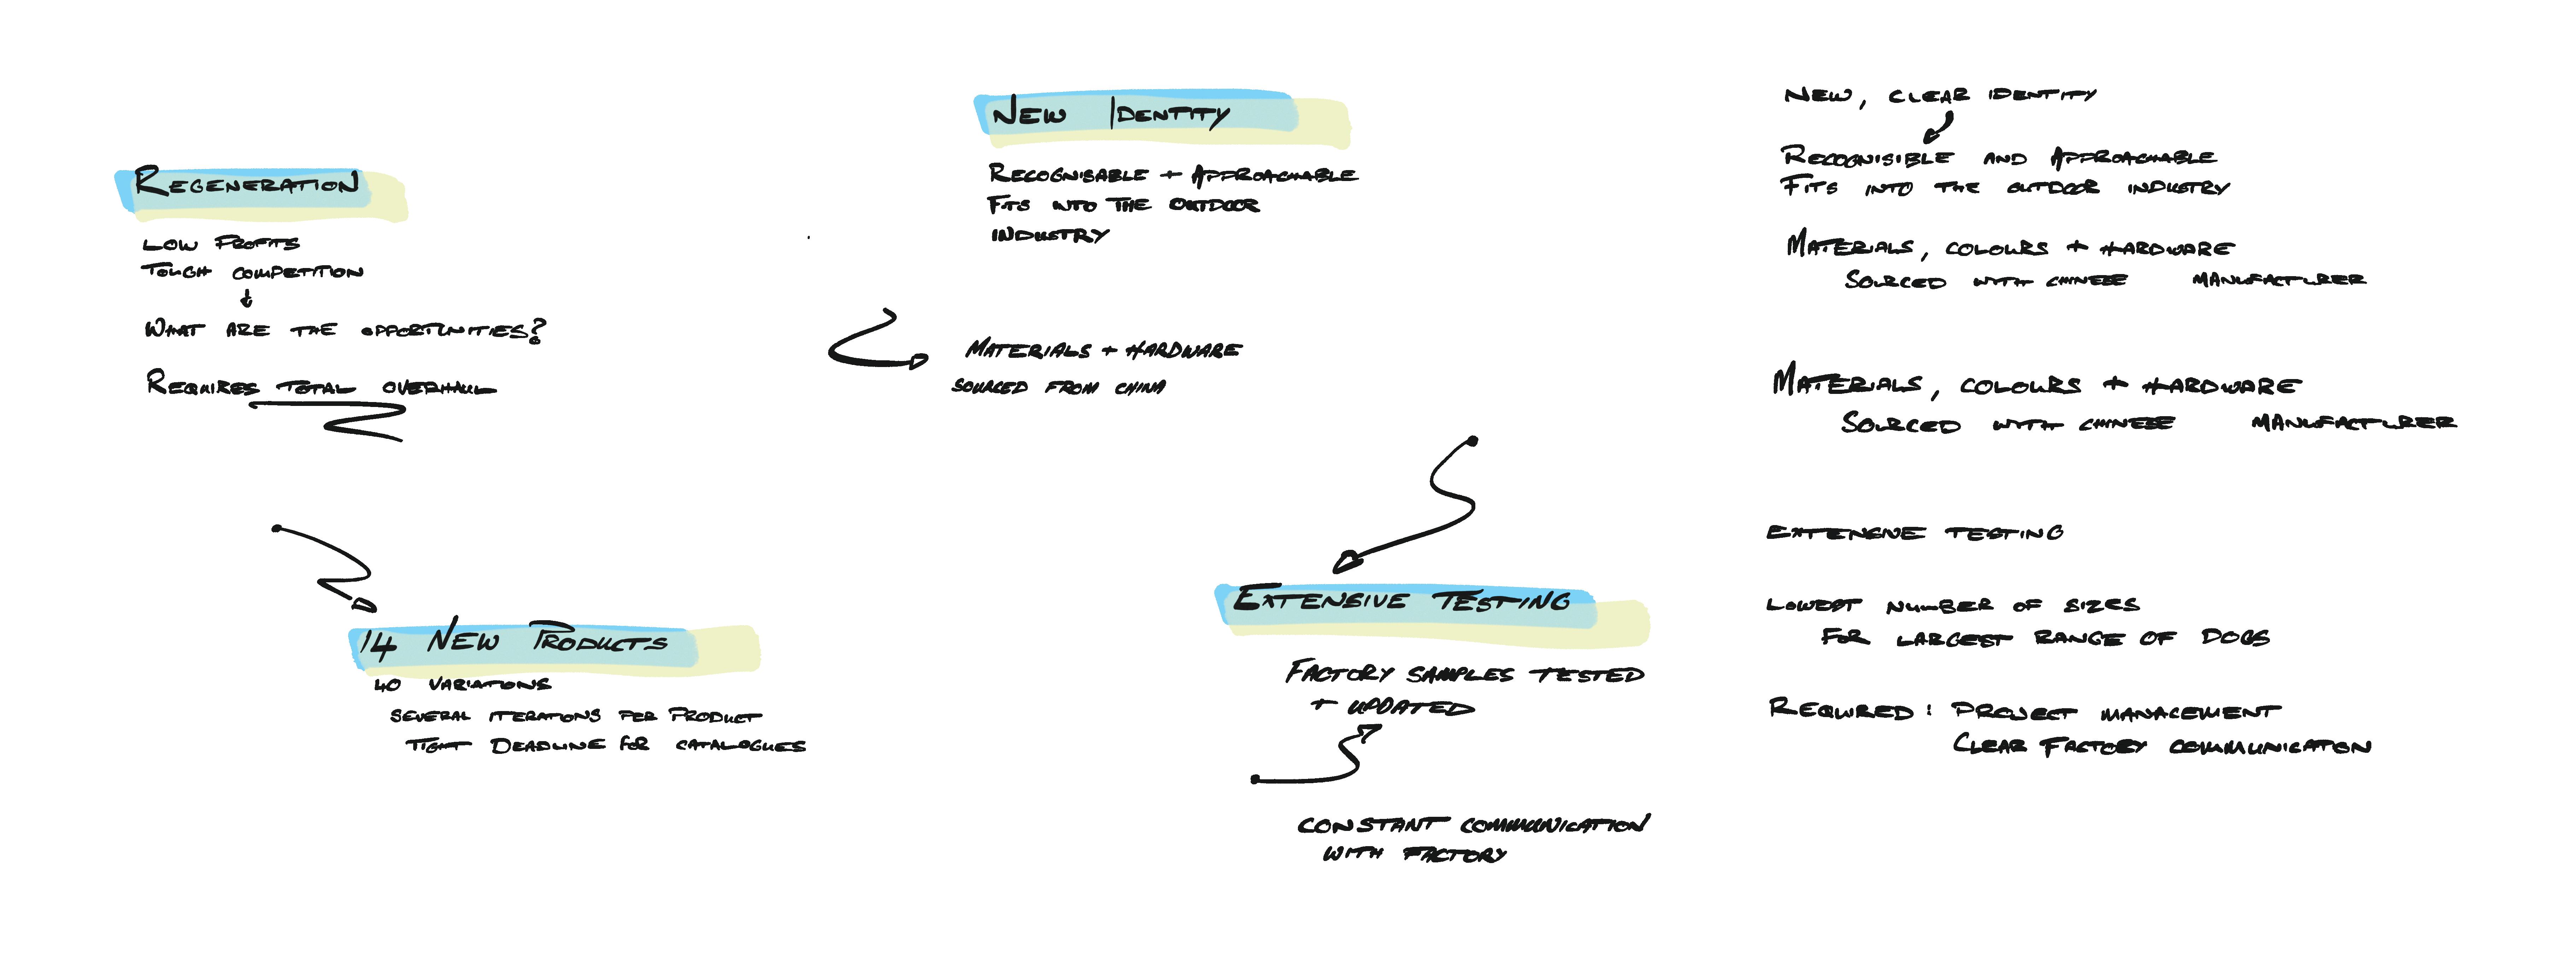 REGENERATION
LOW PROFITS
TOUGH COMPETITION
WHAT ARE THE OPPORTUNITIES?
REQUIRES TOTAL OVERHAUL
14 NEW PRODUCTS
40 VARIATIONS
SEVERAL ITERATIONS PER PRODUCT
TIGHT DEADLINE FOR CATALOGUES
NEW IDENTITY
RECOGNISABLE + APPROACHABLE
FITS INTO THE OUTDOOR
INDUSTRY
MATERIALS + HARDWARE
SOURCED FROM CHINA
EXTENSIVE TESTING
FACTORY SAMPLES TESTED
+ UPDATED
CONSTANT COMMUNICATION
WITH FACTORY
NEW, CLEAR IDENTITY
RECOGNISIBLE AND APPROACHABLE
FITS INTO THE OUTDOOR INDUSTRY
MATERIALS, COLOURS + HARDWARE
SOURCED WITH CHINESE MANUFACTURER
MATERIALS, COLOURS + HARDWARE
SOURCED WITH CHINESE MANUFACTURER
EXTENSIVE TESTING
LOWEST NUMBER OF SIZES
FOR LARGEST RANGE OF DOGS
REQUIRED: PROJECT MANAGEMENT
CLEAR FACTORY COMMUNICATION